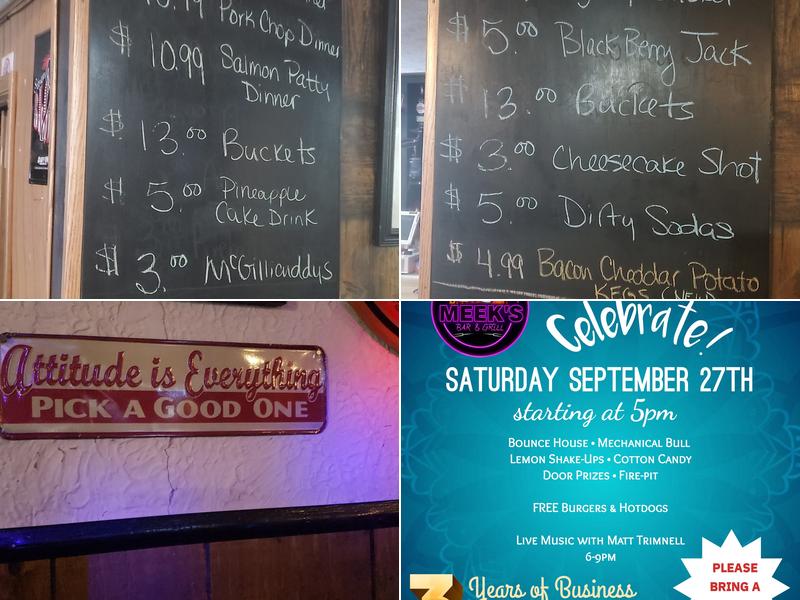 Pork Chop Dinner
$ 10.99 Salmon Patty
Dinner
$ 13.00 Buckets
$ 5.00 Pineapple
Cake Drink
$ 3.00 McGillicuddys
$ 5.00 Black Berry Jack
$ 13.00 Buckets
$ 3.00 Cheesecake Shot
$ 5.00 Dirty Sodas
$ 4.99 Bacon Cheddar Potato
KEGS
Attitude is Everything
PICK A GOOD ONE
MEEK'S
BAR & GRILL
Celebrate!
SATURDAY SEPTEMBER 27TH
starting at 5pm
BOUNCE HOUSE • MECHANICAL BULL
LEMON SHAKE-UPS • COTTON CANDY
DOOR PRIZES • FIRE-PIT
FREE BURGERS & HOTDOGS
LIVE MUSIC WITH MATT TRIMNELL
6-9PM
3 Years of Business
PLEASE
BRING A